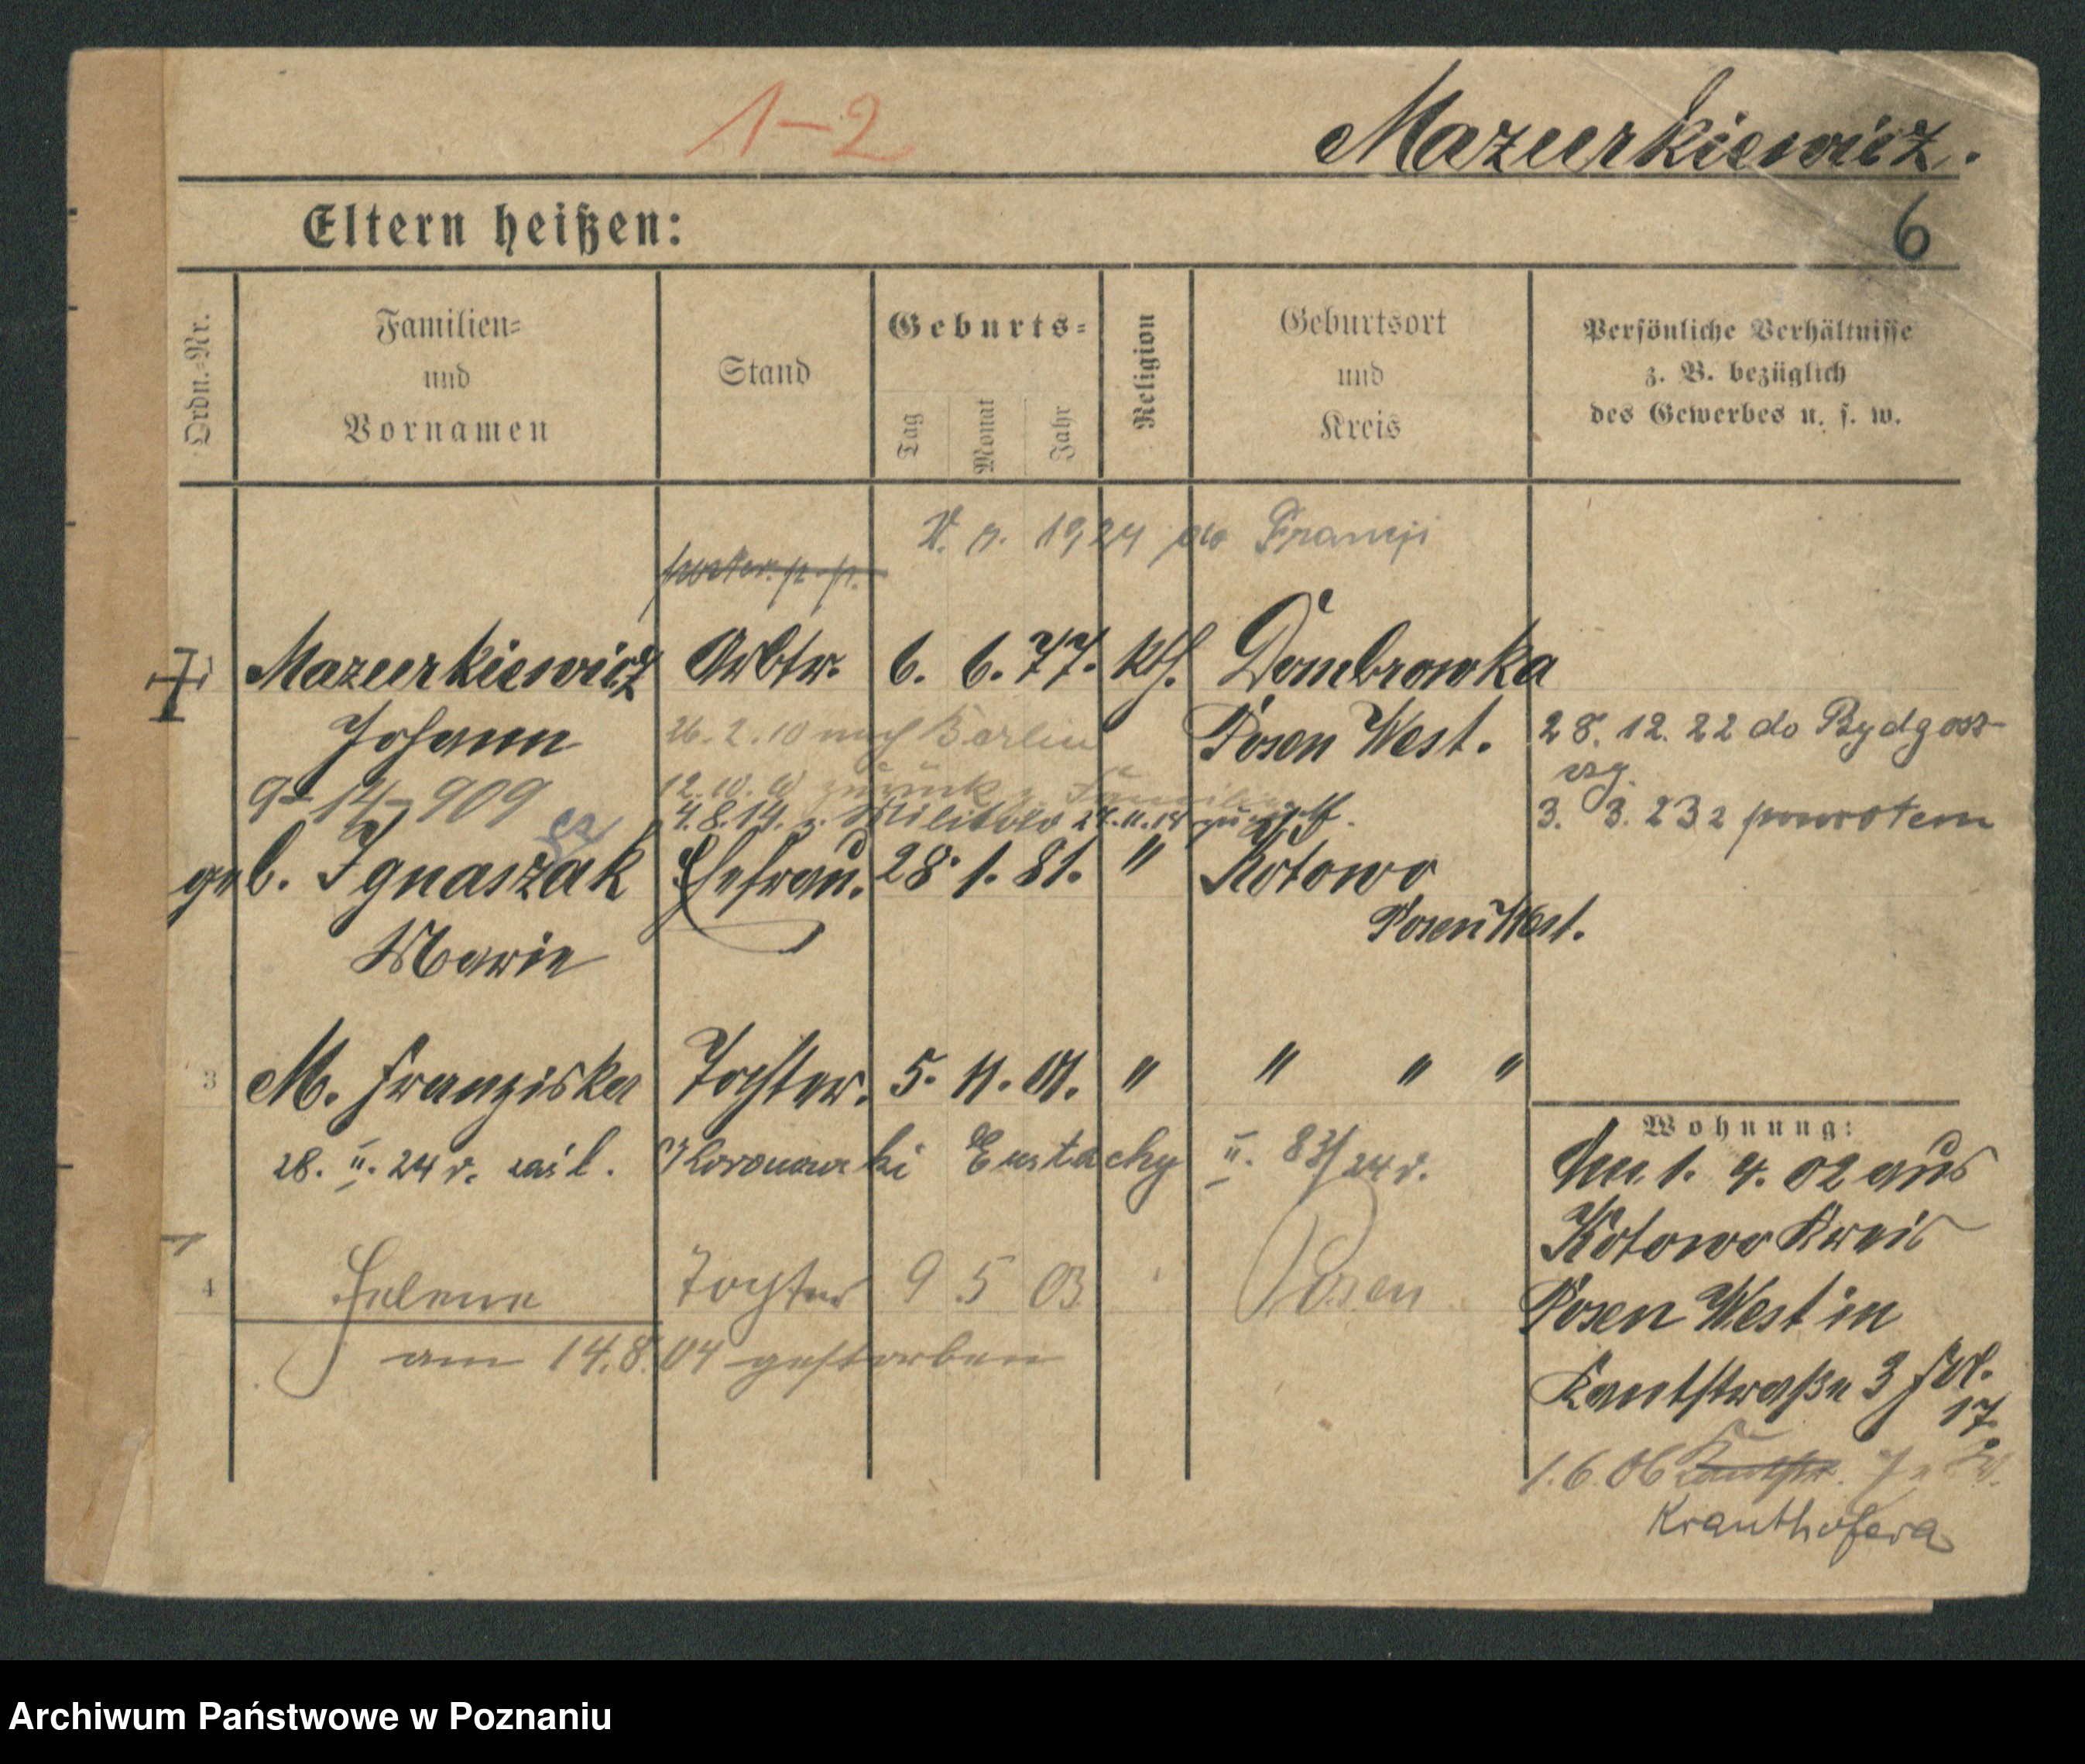 1-2
Mazurkiewicz.
Eltern heißen:
6
Ordn.-Nr.
Familien-
und
Vornamen
Stand
Geburts-
Tag
Monat
Jahr
Religion
Geburtsort
und
Kreis
Persönliche Verhältnisse
z. B. bezüglich
des Gewerbes u. s. w.
1924 do Francji
Mazurkiewicz Arbtr. 6. 6. 77. kth. Dombrowka
Johann 26.2.10 nach Berlin Posen West. 28. 12. 22 do Bydgosz-
12.10.10 zurück z. Familie
9-12-909 4.8.14. z. Militär 24.11.18 zurück. 3. 3. 23 z powrotem
geb. Ignaszak Ehefrau. 28. 1. 81. " Kotowo
cz
Marie Posen West.
3 M. Franziska Tochter. 5. 11. 01. " " " "
28. II. 24 r. Eustachy II. 83/24 r.
4 Helene Tochter 9 5 03 Posen
am 14.8.04 gestorben
Wohnung:
1. 4. 02 aus
Kotowo Kreis
Posen West in
Kantstraße 3
17.
1.6.06
Krauthofera